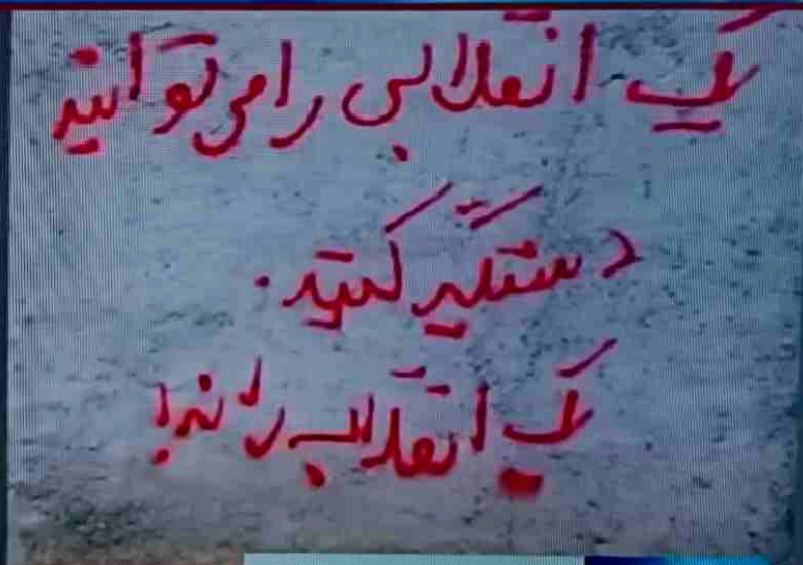 یک انقلابی را می توانید
دستگیر کنید.
یک انقلاب را نه!